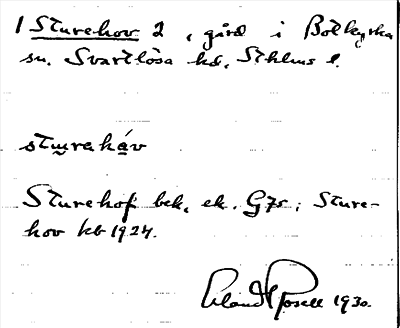 1 Sturehov 2, gård i Botkyrka
sn. Svartlösa hd, Sthlms l.
stu̱rahá̱v
Sturehof bek. ek. G7r; Sture-
hov kb 1924.
Erland Rosell 1930.